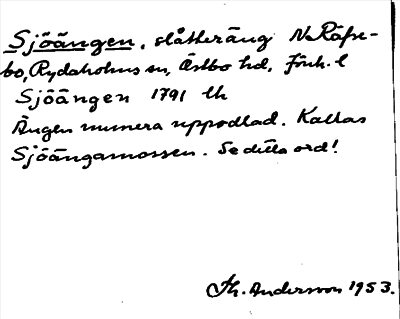 Sjöängen, slåtteräng N. Räfse-
bo, Rydaholms sn, Östbo hd, Jönk. l
Sjöängen 1791 lh
Ängen numera uppodlad. Kallas
Sjöängamossen. Se detta ord!
Th. Andersson 1953.